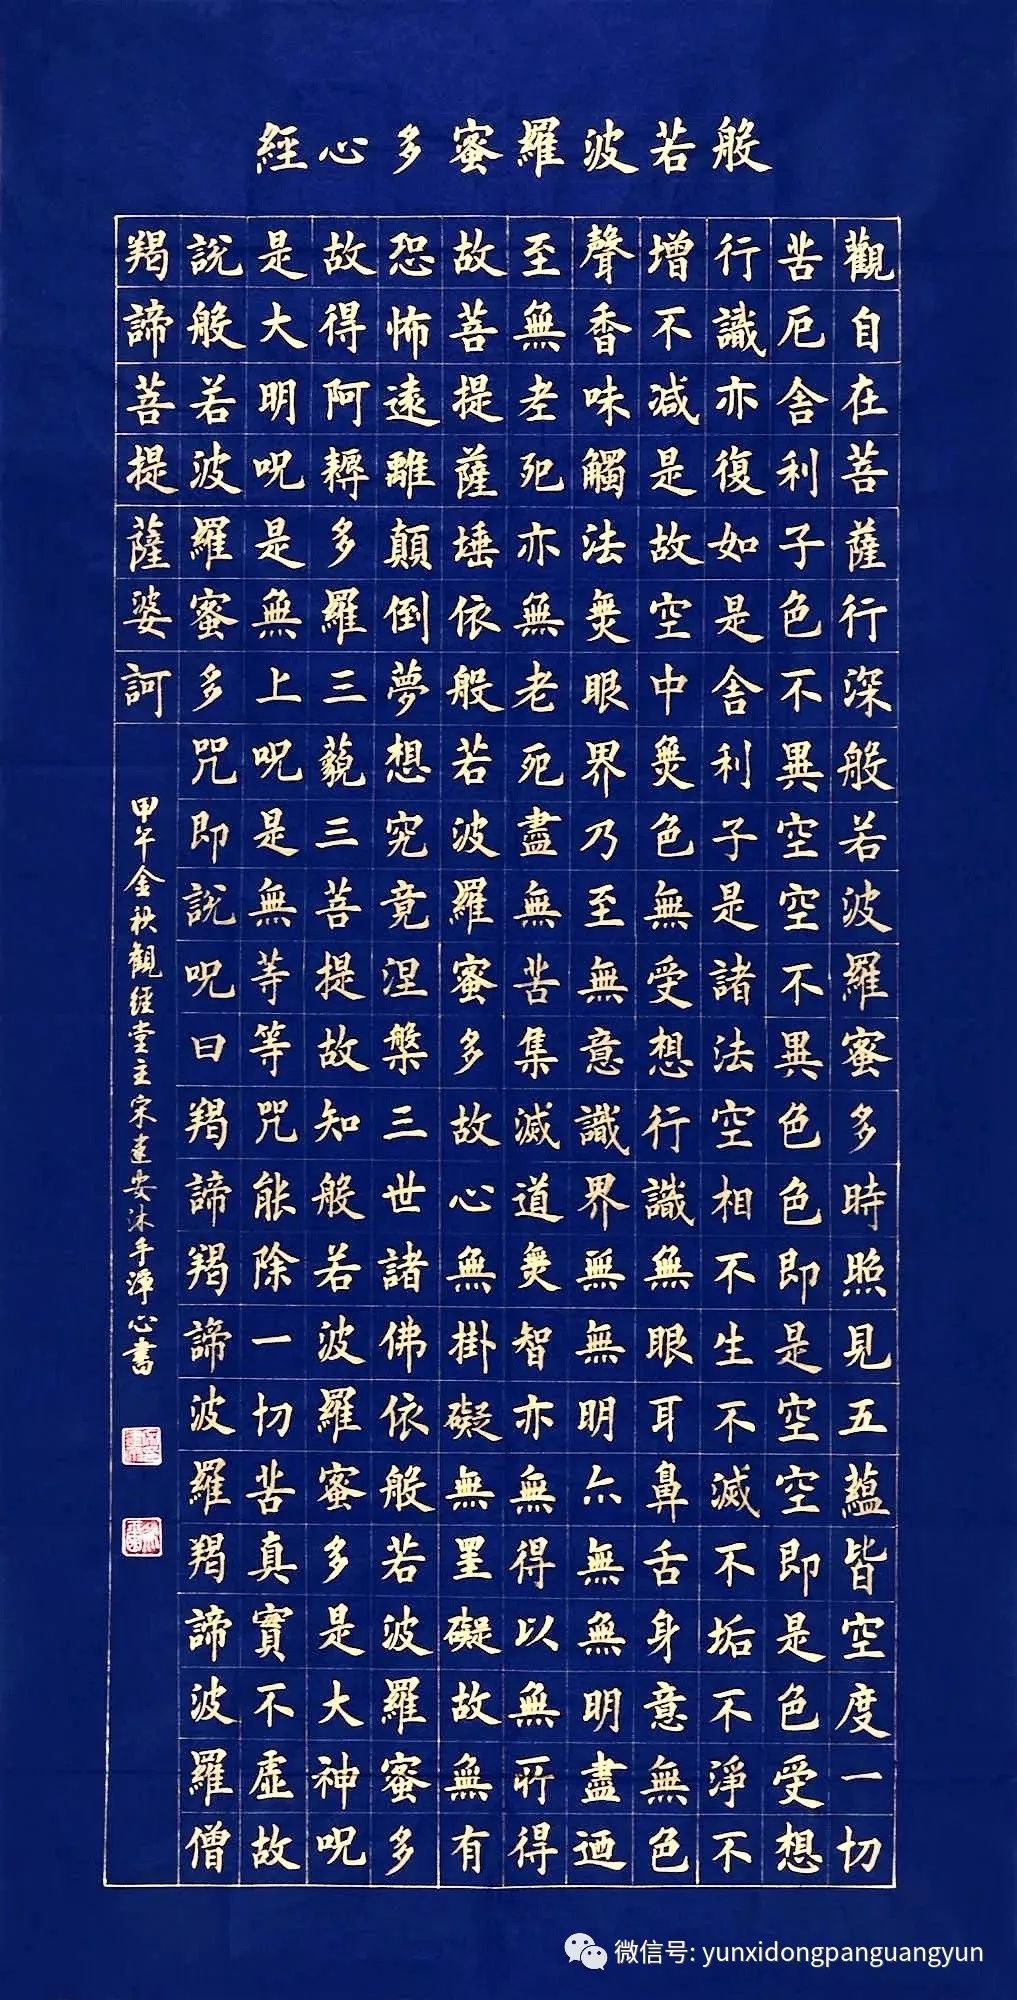 般若波羅蜜多心經
觀自在菩薩行深般若波羅蜜多時照見五蘊皆空度一切
苦厄舍利子色不異空空不異色色即是空空即是色受想
行識亦復如是舍利子是諸法空相不生不滅不垢不淨不
增不減是故空中無色無受想行識無眼耳鼻舌身意無色
聲香味觸法無眼界乃至無意識界無無明亦無無明盡迺
至無老死亦無老死盡無苦集滅道無智亦無得以無所得
故菩提薩埵依般若波羅蜜多故心無掛礙無罣礙故無有
恐怖遠離顛倒夢想究竟涅槃三世諸佛依般若波羅蜜多
故得阿耨多羅三藐三菩提故知般若波羅蜜多是大神呪
是大明呪是無上呪是無等等咒能除一切苦真實不虛故
說般若波羅蜜多咒即說呪曰羯諦羯諦波羅羯諦波羅僧
羯諦菩提薩婆訶
甲午金秋觀經堂主宋建安沐手淨心書
微信号: yunxidongpanguangyun